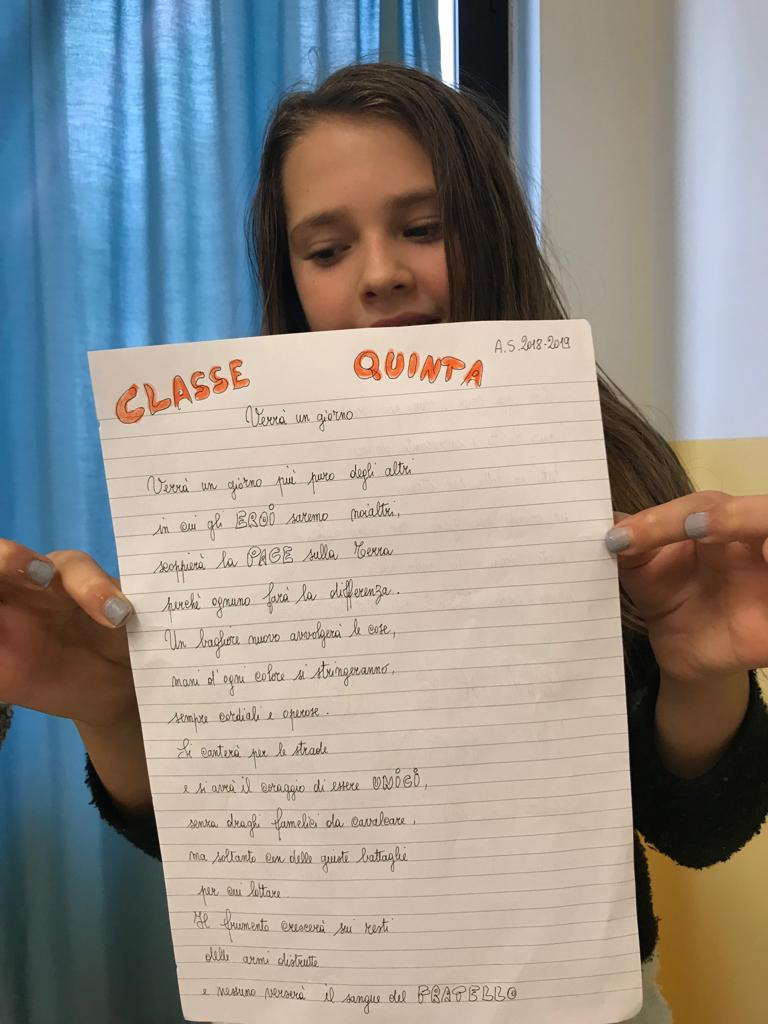 CLASSE QUINTA
A.S. 2018-2019
Verrà un giorno
Verrà un giorno più puro degli altri
in cui gli EROI saremo noialtri,
scoppierà la PACE sulla Terra
perchè ognuno farà la differenza.
Un bagliore nuovo avvolgerà le cose,
mani d'ogni colore si stringeranno,
sempre cordiali e operose.
Si canterà per le strade
e si avrà il coraggio di essere UNICI,
senza draghi famelici da cavalcare,
ma soltanto con delle giuste battaglie
per cui lottare.
Il frumento crescerà sui resti
delle armi distrutte
e nessuno verserà il sangue del FRATELLO